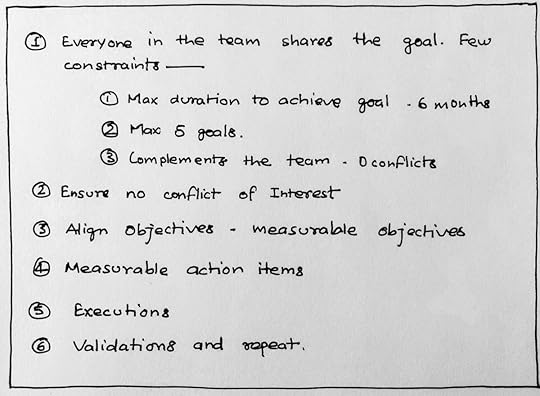 ① Everyone in the team shares the goal. Few
constraints —
① Max duration to achieve goal - 6 months
② Max 5 goals.
③ Complements the team - 0 conflicts
② Ensure no conflict of Interest
③ Align objectives - measurable objectives
④ Measurable action items
⑤ Executions
⑥ Validations and repeat.